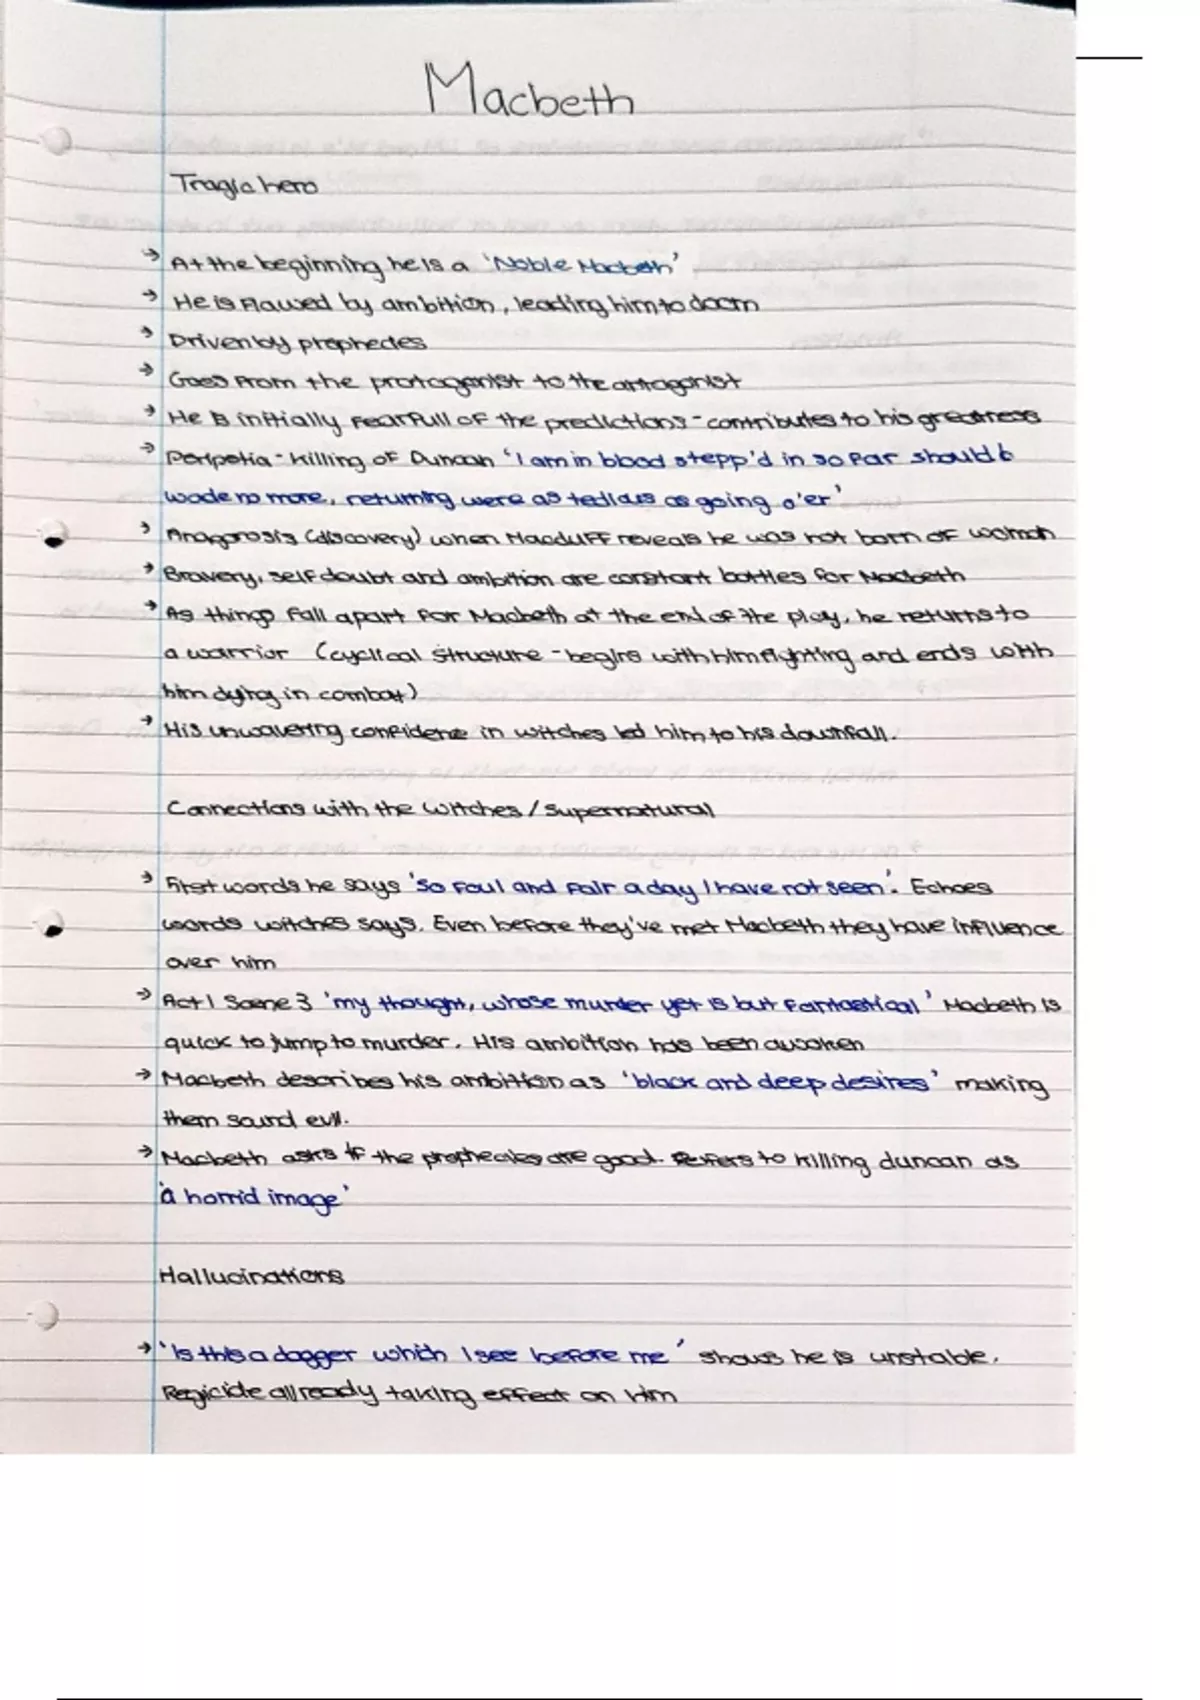 Macbeth
Tragic hero
→ At the beginning he is a 'Noble Macbeth'
→ He is flawed by ambition, leading him to doom
→ Driven by prophecies
→ Goes from the protagonist to the antagonist
→ He is initially fearfull of the predictions - contributes to his greatness
→ Peripetia - killing of Duncan 'I am in blood stepp'd in so far should I
wade no more, returning were as tedious as going o'er'
→ Anagorosis (discovery) when Macduff reveals he was not born of woman
→ Bravery, self doubt and ambition are constant battles for Macbeth
→ As things fall apart for Macbeth at the end of the play, he returns to
a warrior (cyclical structure - begins with him fighting and ends with
him dying in combat)
→ His unwavering confidence in witches led him to his downfall.
Connections with the witches / supernatural
→ First words he says 'so foul and fair a day I have not seen'. Echoes
words witches says. Even before they've met Macbeth they have influence
over him
→ Act 1 Scene 3 'my thought, whose murder yet is but fantastical' Macbeth is
quick to jump to murder. His ambition has been awoken
→ Macbeth describes his ambition as 'black and deep desires' making
them sound evil.
→ Macbeth asks if the prophecies are good. Refers to killing duncan as
'a horrid image'
Hallucinations
→ 'Is this a dagger which I see before me' shows he is unstable.
Regicide allready taking effect on him